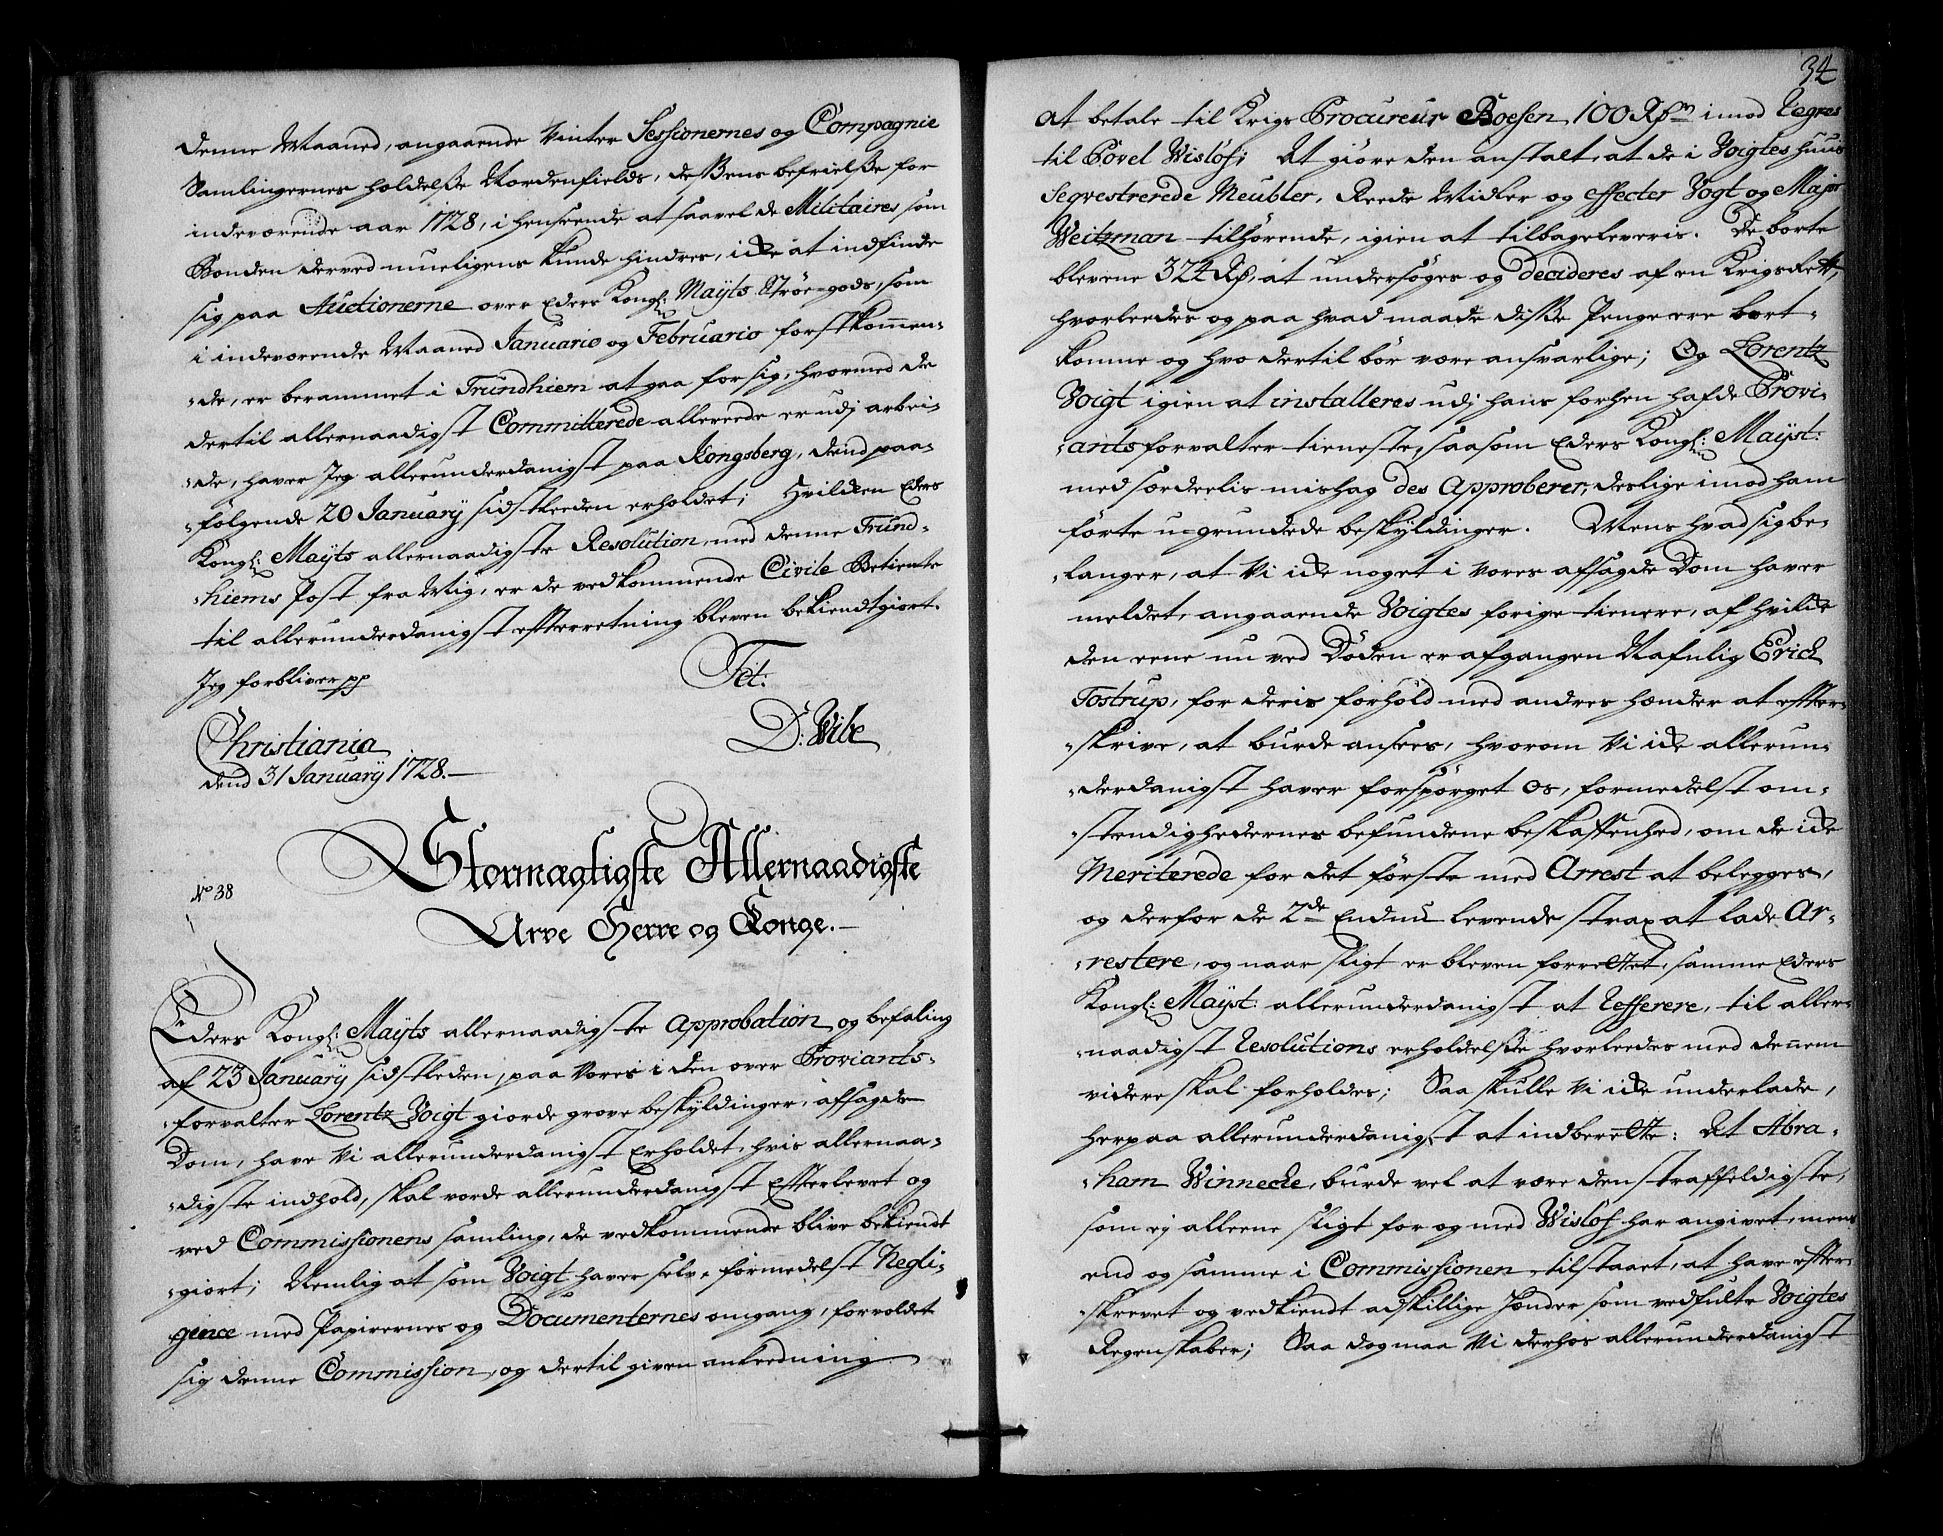 denne Maaned, angaaende Vinter Sessionernes og Compagnie
Samlingernes holdelsse Nordenfields, dessens befrielsse for
indeværende aar 1728, i henseende at saavel de Militaires som
Bonden derved mueligens kunde hindres, icke at indfinde
sig paa Auctionerne over Eders Kongl: Mayts Strøe-gods, som
i indeværende Maaned Januario og Februario førstkommen-
-de, er berammet i Trundhiem at gaa for sig, hvormed de
dertil allernaadigst Committerede allereede er udj arbei-
-de, haver Jeg allerunderdanigst paa Kongsberg, dend paa-
-følgende 20 January sidstleeden erholdet; Hvilcken Eders
Kongl: Mayts allernaadigste Resolution, med denne Trund-
-hiems Post fra Mig, er de vedkommende Civile Betiente
til allerunderdanigst efterretning bleven bekiendtgiort.
Jeg forbliver pp
Tet:
D: Vibe
Christiania
dend 31 January 1728.
Stormægtigste Allernaadigste
No 38
Arve Herre og Konge.
Eders Kongl: Mayts allernaadigste Approbation og befaling
af 23 January sidstleden, paa Vores i den over Proviants-
-forvalter Lorentz Voigt giorde grove beskyldinger, afsagde
Dom, have Vi allerunderdanigst Erholdet, hvis allernaa-
-digste indhold, skal vorde allerunderdanigst Efterlevet og
ved Commissionens samling, de vedkommende blive bekiendt
-giort; Nemlig at som Voigt haver selv, formedelst Negli-
gence med Papirernes og Documenternes omgang, forvoldet
sig denne Commission, og dertil given anleedning
34
at betale til Krigs Procureur Boesen 100 Rd imod Regres
til Povel Wisløf; At giøre den anstalt, at de i Voigtes huus
Seqvestrerede Meubler, Reede Midler og effecter Vogt og Major
Weitzman tilhørende, igien at tilbageleveris. De borte
blevene 324 Rd, at undersøges og decideres af en KrigsRett,
hvorleedes og paa hvad maade disse Penge ere bort-
komne og hvo dertil bør være ansvarlige; Og Lorentz
Voigt igien at installeres udj hans forhen hafde Provi-
-antsforvalter tieneste, saasom Eders Kongl: Mayst:
med særdeelis mishag des Approberer, deslige imod ham
førte u-grundede beskyldinger. Mens hvad sig be-
-langer, at Vi icke noget i Vores afsagde Dom haver
meldet, angaaende Voigtes forige tienere, af hvilcke
den eene nu ved Døden er afgangen Nafnlig Erich
Tostrup, for deris forhold med andres hænder at effter-
-skrive, at burde ansees, hvorom Vi icke allerun-
-derdanigst haver forspørget os, formedelst om-
-stendighedernes befundene beskaffenhed, om de icke
Meriterede for det første med Arrest at belegges,
og derfor de 2de Endnu levende strax at lade Ar-
-restere, og naar sligt er bleven forrettet, samme Eders
Kongl: Mayst: allerunderdanigst at Refferere, til aller-
-naadigst Resolutions erholdelsse hvorleedes med dennem
videre skal forholdes; Saa skulle Vi icke underlade,
herpaa allerunderdanigst at indberette: At Abra-
-ham Winnecke, burde vel at være den straffeldigste,
som ej alleene sligt for og med Wisløf har angivet, mens
end og samme i Commissionen tilstaaet, at have efter-
-skrevet og vedkiendt adskillige hænder som vedfulte Voigtes
Regenskaber; Saa dog maa Vi derhos allerunderdanigst